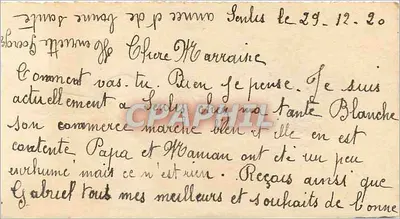 Senlis le 29-12-20
Chère Marraine
Comment vas-tu. Bien je pense. Je suis
actuellement a chez ma tante Blanche
son commerce marche bien et elle en est
contente Papa et Maman ont été un peu
enrhumé mais ce n'est rien. Reçois ainsi que
Gabriel tous mes meilleurs et souhaits de bonne
année et de bonne santé
CPAPHIL